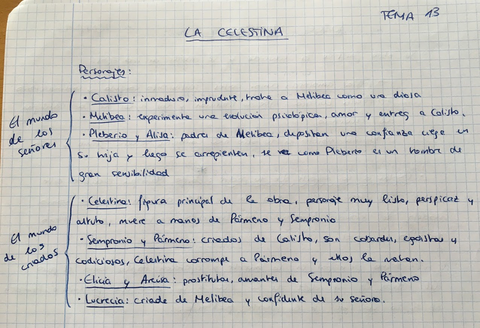 TEMA 13
LA CELESTINA
Personajes:
El mundo de los señores
· Calisto: inmaduro, imprudente, trata a Melibea como una diosa
· Melibea: experimenta una evolución psicológica, amor y entrega a Calisto.
· Pleberio y Alisa: padres de Melibea, depositan una confianza ciega en
su hija y luego se arrepienten, se ve como Pleberio es un hombre de
gran sensibilidad
El mundo de los criados
· Celestina: figura principal de la obra, personaje muy listo, perspicaz y
astuto, muere a manos de Pármeno y Sempronio
· Sempronio y Pármeno: criados de Calisto, son cobardes, egoístas y
codiciosos, Celestina corrompe a Pármeno y ellos la matan.
· Elicia y Areusa: prostitutas, amantes de Sempronio y Pármeno
· Lucrecia: criada de Melibea y confidente de su señora.